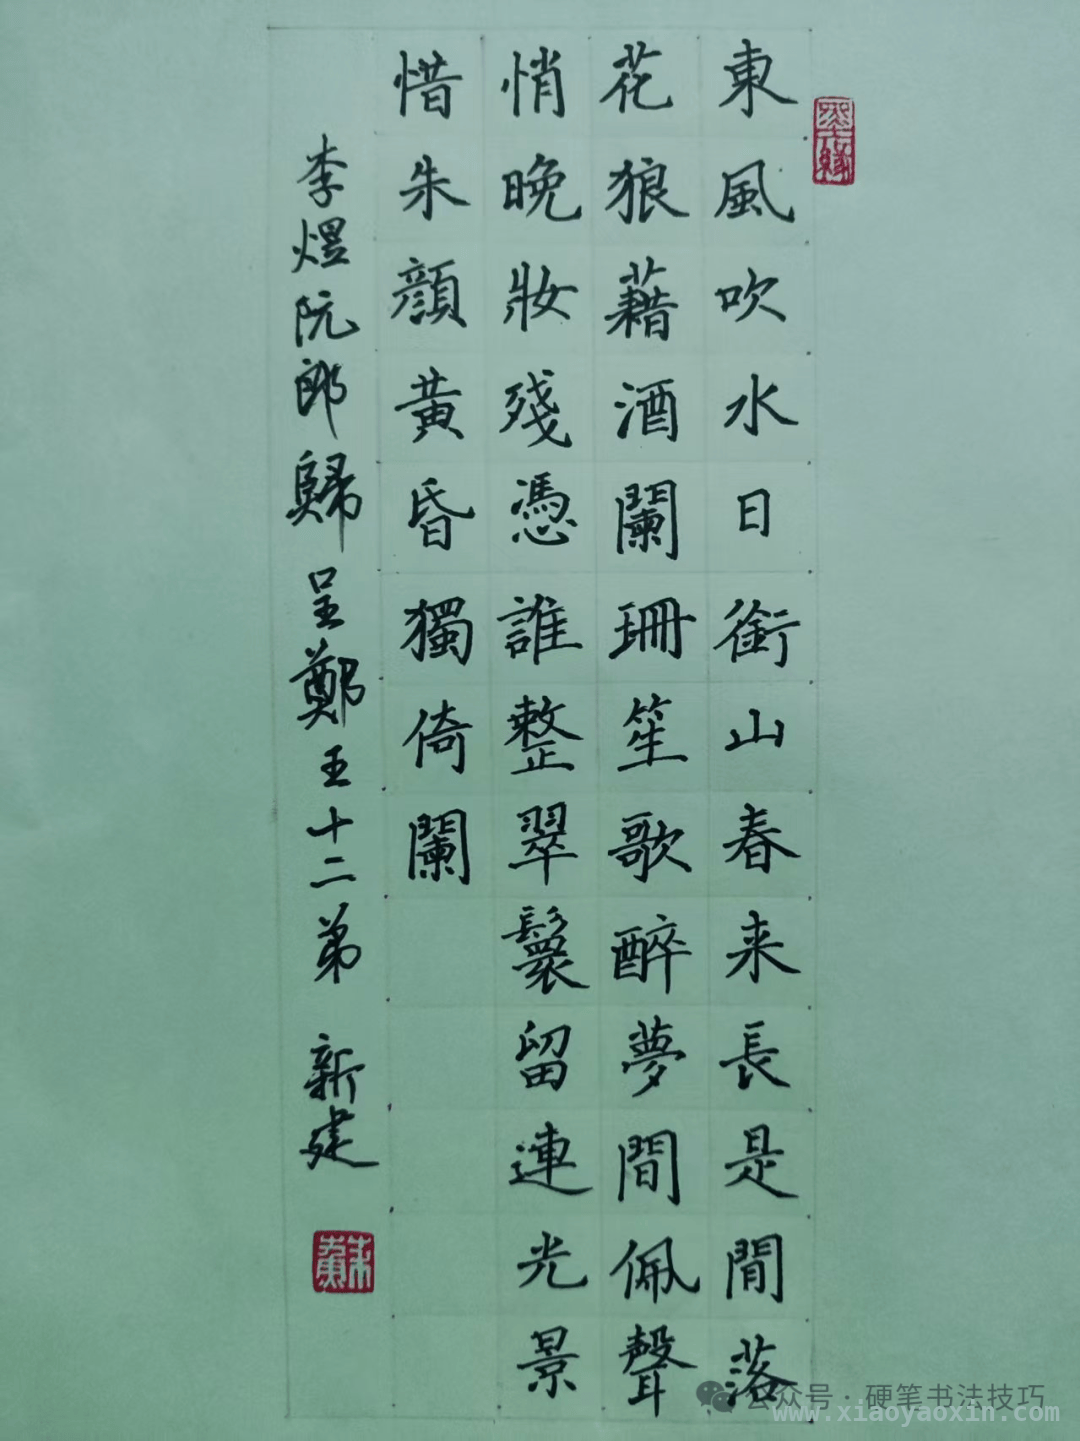 東風吹水日銜山春来長是閒落
花狼藉酒闌珊笙歌醉夢間佩聲
悄晚妝殘憑誰整翠鬟留連光景
惜朱顔黄昏獨倚闌
李煜阮郎歸呈鄭王十二弟 新建
公众号·硬笔书法技巧
www.xiaoyaoxin.com